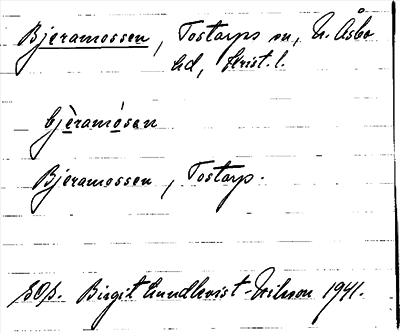 Bjeramossen, Tostarps sn, N. Åsbo
hd, Krist. l.
bjèramósan
Bjeramossen, Tostarp.
SOS. Birgit Lundkvist-Nilsson 1941.